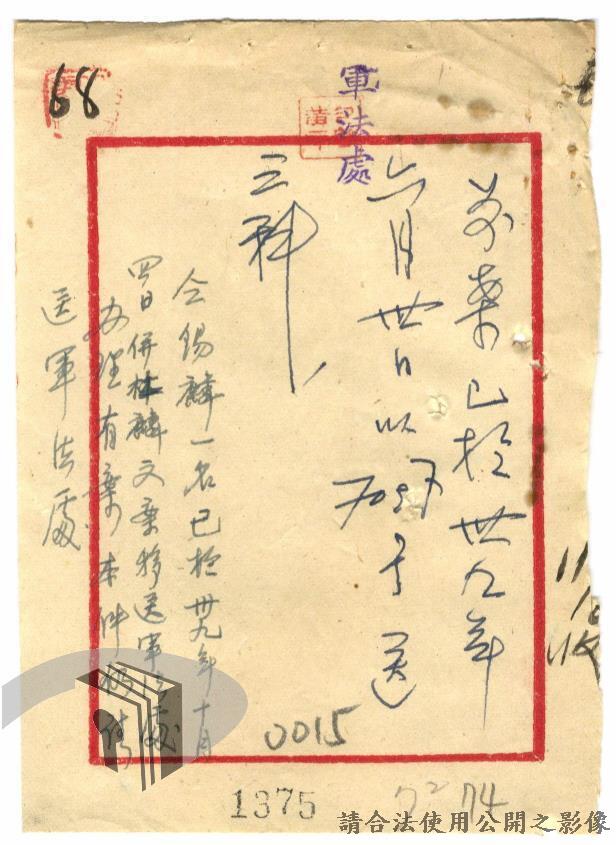 68
軍法處
本案已於卅九年
六月卅日以
字送
三科
仝錫麟一名已於卅九年十月
四日併林麟文案移送軍法處
辦理有案本件擬
送軍法處
0015
1375
74
請合法使用公開之影像